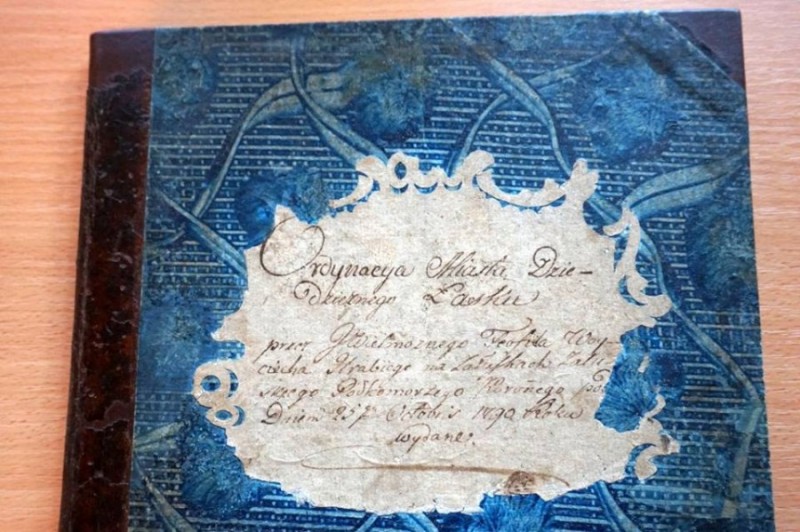 Ordynacya Miasta Dzie-
dzicznego Łasku
przez JWielmożnego Teofila Woy-
ciecha Hrabiego na Załuskach Zału-
skiego Podkomorzego Koronnego pod
Dniem 25 8bris 1790 Roku
wydane.